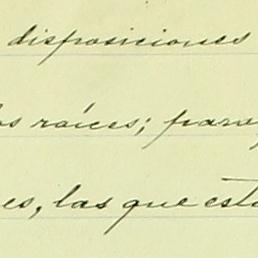 disposiciones
os raíces; para
es, las que est